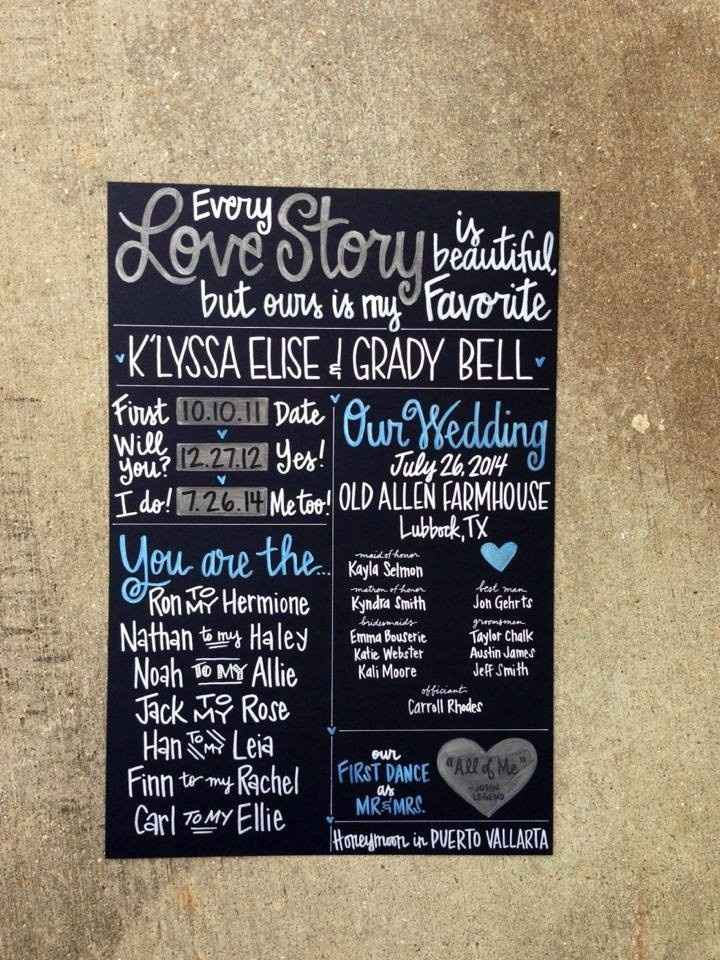 Every
Love Story is
beautiful,
but ours is my Favorite
K'LYSSA ELISE & GRADY BELL
First 10.10.11 Date
Will
you? 12.27.12 Yes!
I do! 7.26.14 Me too!
You are the...
Ron TO MY Hermione
Nathan to my Haley
Noah TO MY Allie
Jack TO MY Rose
Han TO MY Leia
Finn to my Rachel
Carl TO MY Ellie
Our Wedding
July 26, 2014
OLD ALLEN FARMHOUSE
Lubbock, TX
maid of honor
Kayla Selmon
matron of honor
Kyndra Smith
bridesmaids
Emma Bouserie
Katie Webster
Kali Moore
best man
Jon Gehrts
groomsmen
Taylor Chalk
Austin James
Jeff Smith
officiant
Carroll Rhodes
our
FIRST DANCE
as
MR. & MRS.
"All of Me"
-JOHN
LEGEND
Honeymoon in PUERTO VALLARTA